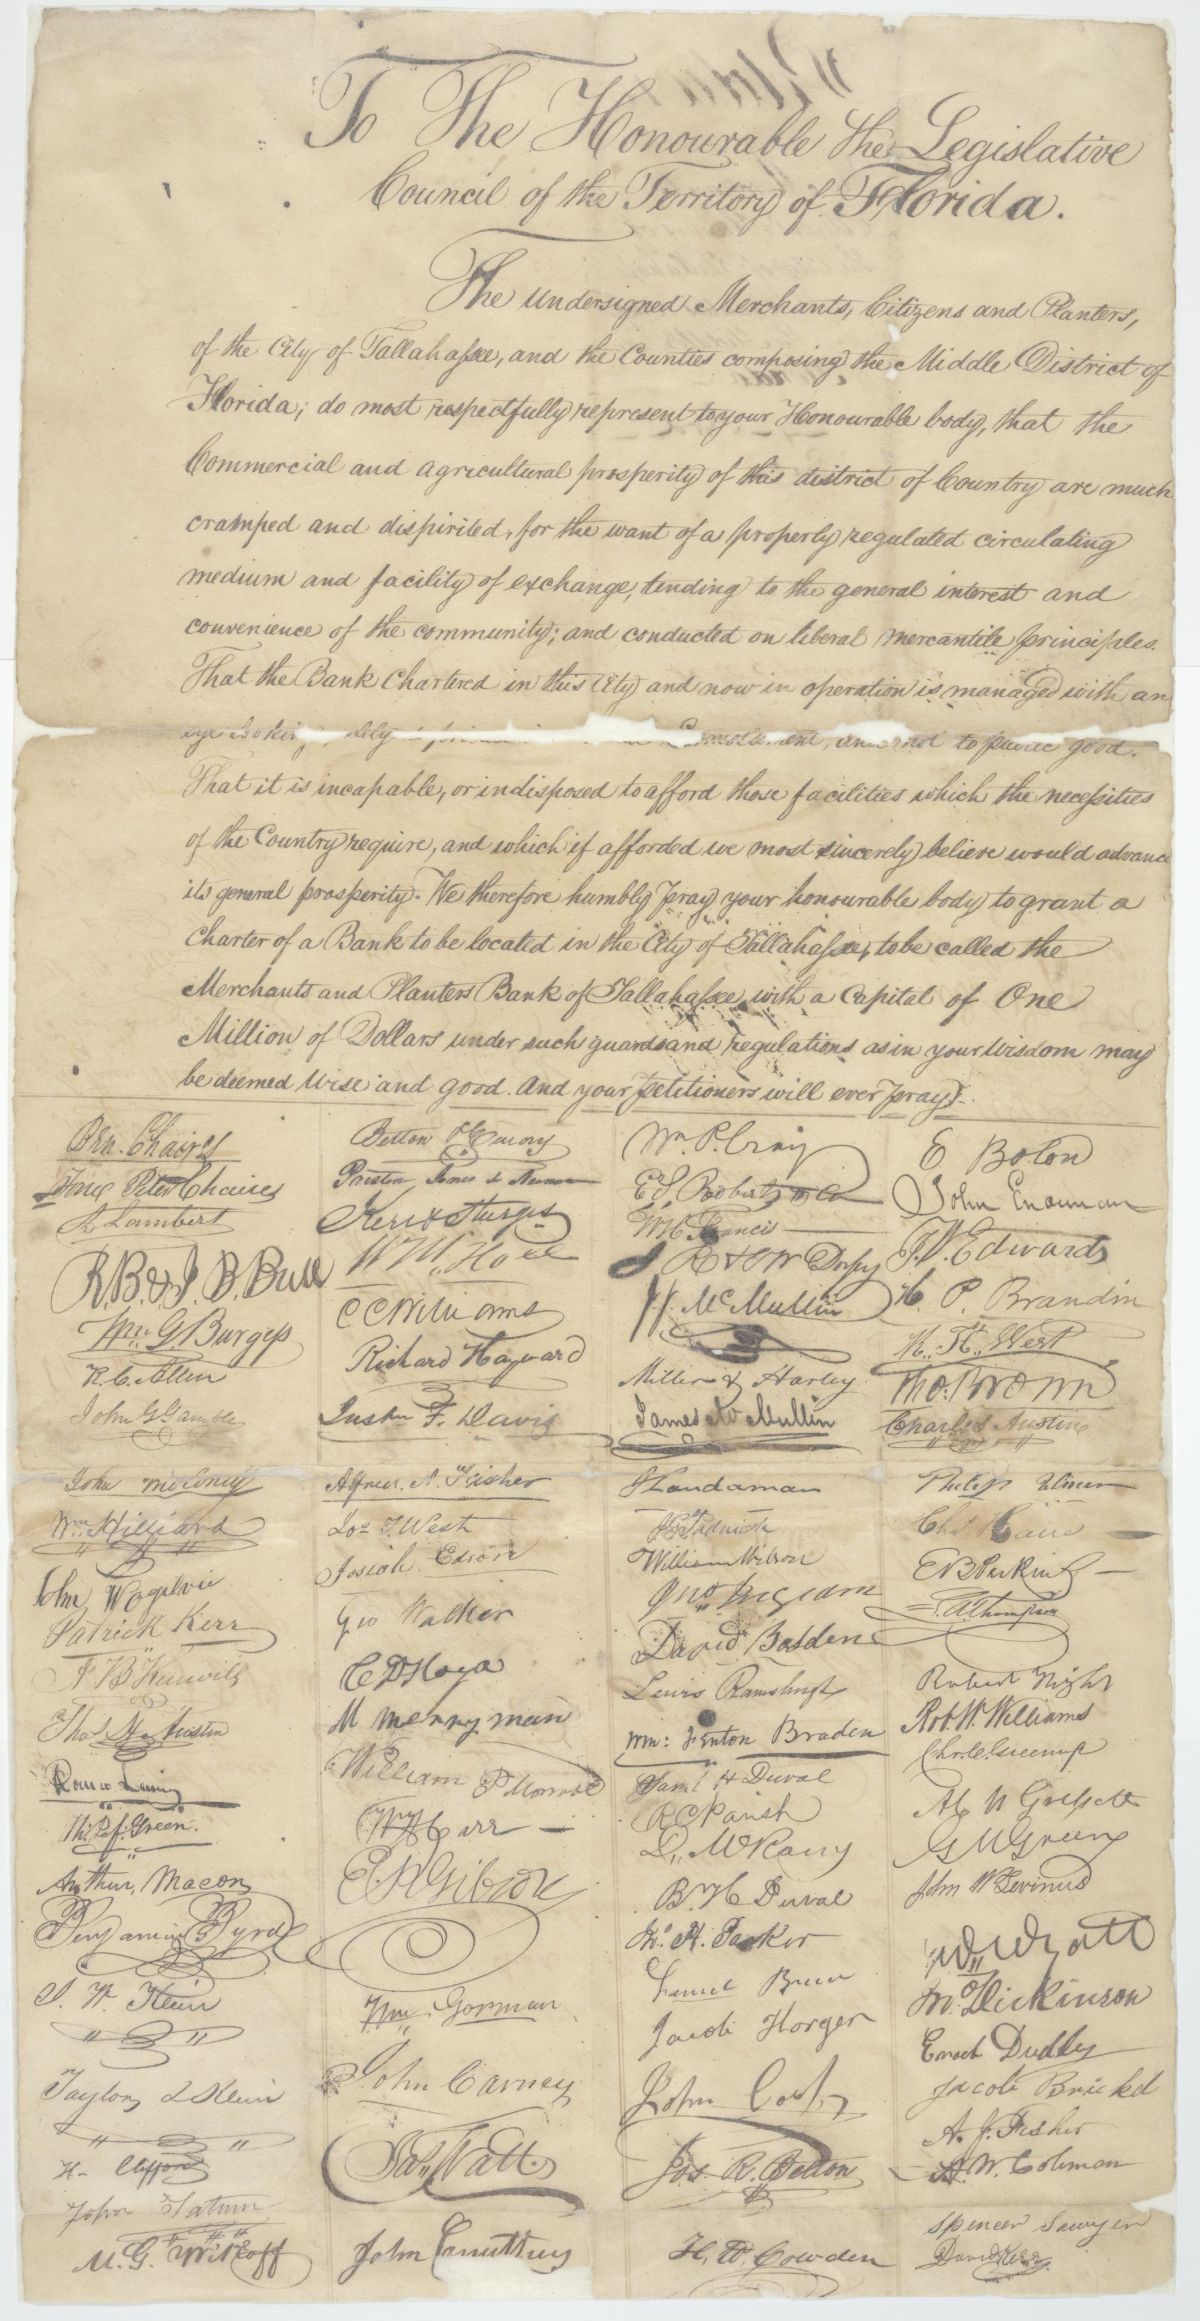 To The Honourable the Legislative
Council of the Territory of Florida.
The undersigned Merchants, Citizens and Planters,
of the City of Tallahassee, and the Counties composing the Middle District of
Florida; do most respectfully represent to your Honourable body, that the
Commercial and agricultural prosperity of this district of Country are much
cramped and dispirited, for the want of a properly regulated circulating
medium and facility of exchange, tending to the general interest and
convenience of the community; and conducted on liberal mercantile principles.
That the Bank Chartered in this City and now in operation is managed with an
eye looking, and not to public good.
That it is incapable, or indisposed to afford those facilities which the necessities
of the Country require, and which if afforded we most sincerely believe would advance
its general prosperity. We therefore humbly pray your honourable body to grant a
charter of a Bank to be located in the City of Tallahassee, to be called the
Merchants and Planters Bank of Tallahassee with a Capital of One
Million of Dollars under such guards and regulations as in your wisdom may
be deemed wise and good. And your petitioners will ever pray.
Ben. Chaires
Peter Chaires
Lambert
R. B. & J. B. Bull
Wm. G. Burgess
H. C. Allen
John G Gamble
John Moloney
Wm Hilliard
John W Ogilvie
Patrick Kerr
Thos H. Austin
Ths. Jef. Green.
Arthur Macon
Benjamin G Byrd
Taylor
H. Clifford
John Tatum
M. G. Witkoff
Betton
Kerr & Sturges
C C Williams
Richard Hayward
F. Davis
Alfred A. Fisher
West
Josiah
Geo Walker
M Merryman
William P Monroe
Wm H Carr
E R Gibson
Wm. Gorman
John Carney
Jas. Watt
John Carruthers
Wm. P. Craig
Wm Francis
J. McMullin
Miller & Harley
James McMullin
William Wilson
Jno Ingram
David Basden
Lewis
Wm: Fenton Braden
Saml H Duval
R C Parish
B. H Duval
Parker
Jacob Horger
John
Jos. R. Betton
H. W. Cowden
E Bolon
John
Edwards
H. P. Brandin
M. H. West
Tho. Brown
Charles Austin
Philip
E B Perkins
Thompson
Robert Hight
Rob. W. Williams
G M Green
John W Levinus
W. Wyatt
Jno. Dickinson
Enoch Dudley
Jacob
A. J. Fisher
A. W. Coleman
Spencer Sawyer
David Kerr